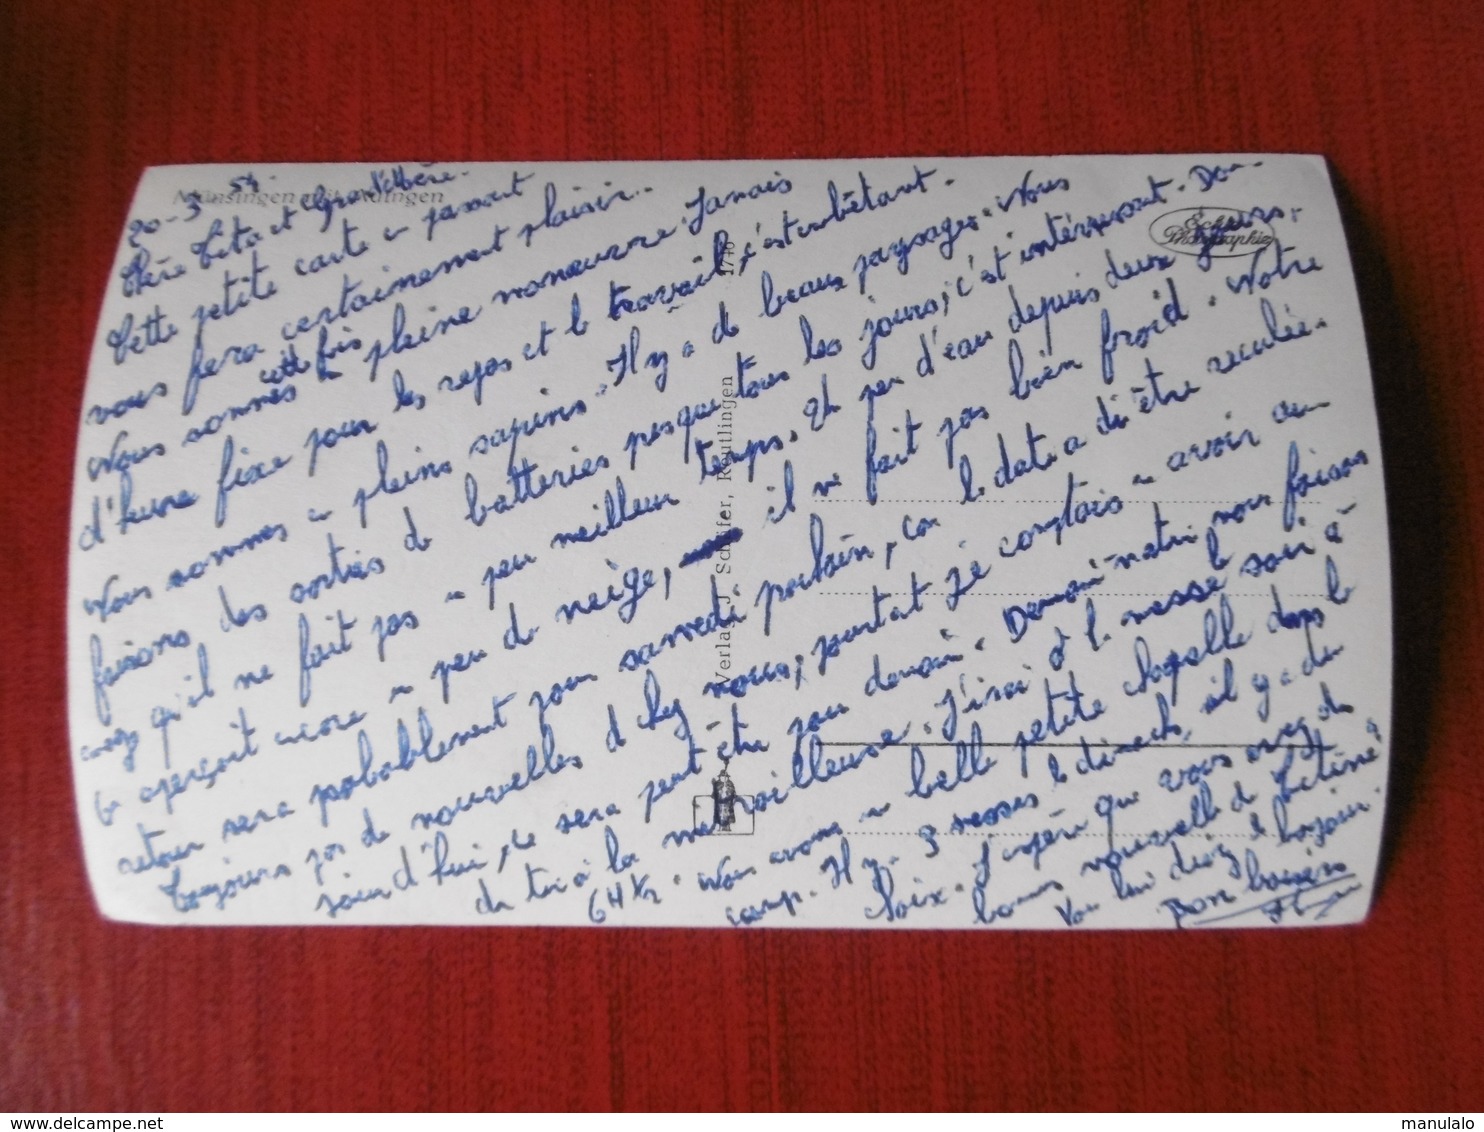 20-3 54.
Chère Tita et Grand'Mère.
Cette petite carte en passant
vous fera certainement plaisir.
Nous sommes cette fois en pleine manœuvre. Jamais
d'heure fixe pour les repas et le travail, c'est embêtant.
Nous sommes en pleins sapins. Il y a de beaux paysages. Nous
faisons des sorties de batteries presque tous les jours, c'est intérressant. Vous
voyez qu'il ne fait pas un peu meilleur temps. Un peu d'eau depuis deux jours,
on aperçoit encore un peu de neige, il ne fait pas bien froid. Notre
retour sera probablement pour samedi prochain, car la date a dû être reculée.
Toujours pas de nouvelles de chez nous, pourtant je comptais en avoir au-
jourd'hui, ce sera peut-être pour demain. Demain matin nous faisons
du tir à la mitrailleuse. J'irai à la messe le soir à
6 H 1/2. Nous avons une belle petite chapelle dans le
camp. Il y a 3 messes le dimanche, il y a du
choix. J'espère que vous avez de
bonnes nouvelles de Titine?
Vous lui direz le bonjour.
Bon baisers
Münsingen mit Auingen
Echte Photographie
Verlag J. Schäfer, Reutlingen
1740
manulalo